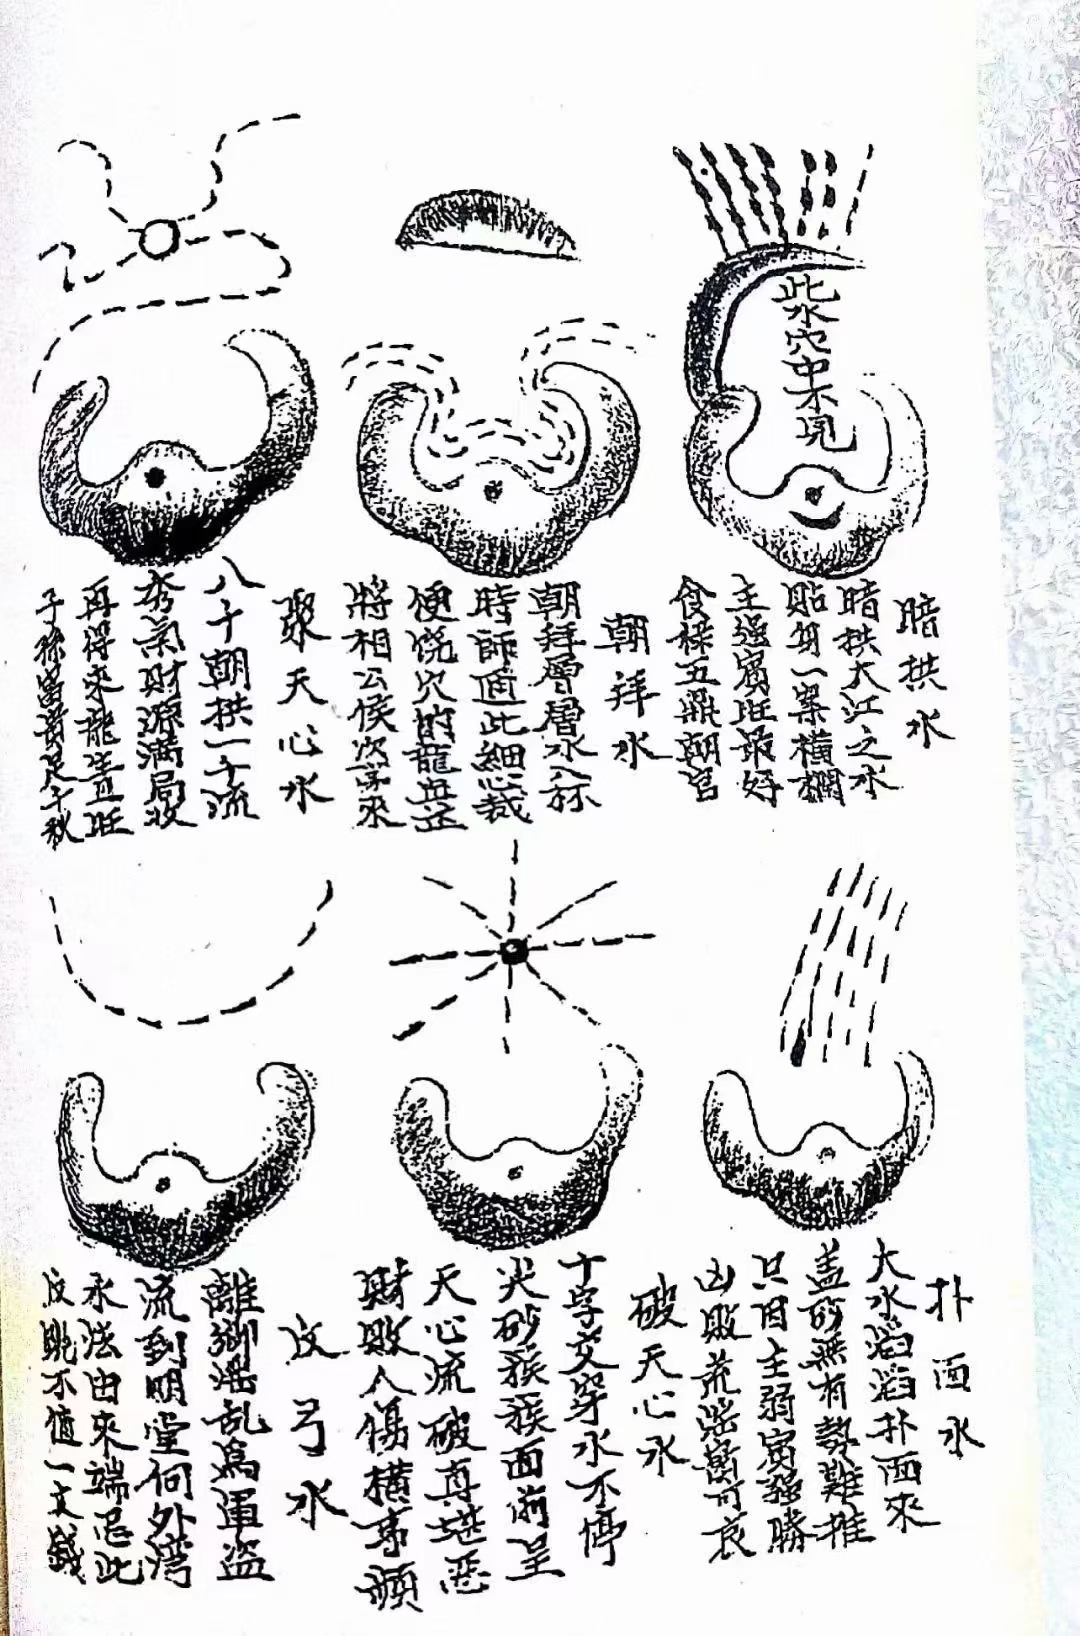 此水穴中不見
暗拱水
暗拱大江之水
貼身一案橫欄
主強賓旺最好
食祿五鼎朝官
朝拜水
朝拜層層水入
時師遇此細心裁
便悦穴的龍真正
將相公侯次第來
聚天心水
八千朝拱一千流
秀氣財源滿局收
再得來龍生旺
子孫富貴足千秋
朴面水
大水滔滔朴面來
盖砂無有勢難推
只因主弱賓強勝
凶敗荒淫實可哀
破天心水
十字交穿水不停
尖砂簇簇面前呈
天心流破真堪惡
財敗人傷橫事頻
反弓水
離鄉淫乱為軍盗
流到明堂向外湾
水法由來端忌此
反跳不值一文錢